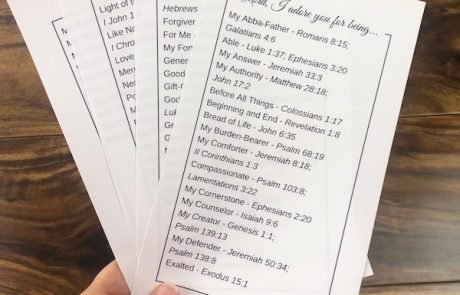 Light of th
I John 1
Like No
I Chro
Love
Mer
Hebrews
Forgiver
For Me -
My For
Gener
Good
Gift-G
Lord, I adore you for being...
My Abba-Father - Romans 8:15;
Galatians 4:6
Able - Luke 1:37; Ephesians 3:20
My Answer - Jeremiah 33:3
My Authority - Matthew 28:18;
John 17:2
Before All Things - Colossians 1:17
Beginning and End - Revelation 1:8
Bread of Life - John 6:35
My Burden-Bearer - Psalm 68:19
My Comforter - Jeremiah 8:18;
II Corinthians 1:3
Compassionate - Psalm 103:8;
Lamentations 3:22
My Cornerstone - Ephesians 2:20
My Counselor - Isaiah 9:6
My Creator - Genesis 1:1;
Psalm 139:13
My Defender - Jeremiah 50:34;
Psalm 138:8
Exalted - Exodus 15:1